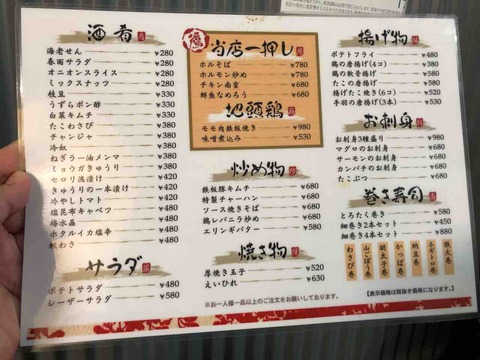 酒肴
海老せん ¥280
春雨サラダ ¥280
オニオンスライス ¥280
ミックスナッツ ¥280
枝豆 ¥330
うずらポン酢 ¥330
白菜キムチ ¥330
たこわさび ¥330
チャンジャ ¥330
冷奴 ¥380
ねぎラー油メンマ ¥380
ミョウガきゅうり ¥380
セロリ浅漬け ¥420
きゅうりの一本漬け ¥420
冷やしトマト ¥420
塩昆布キャベツ ¥480
梅水晶 ¥480
ホタルイカ塩辛 ¥480
板わさ ¥480
サラダ
ポテトサラダ ¥480
シーザーサラダ ¥580
当店一押し
ホルそば ¥780
ホルモン炒め ¥780
チキン南蛮 ¥680
鮮魚なめろう ¥680
地頭鶏
モモ肉鉄板焼き ¥980
味噌煮込み ¥530
炒め物
鉄板豚キムチ ¥680
特製チャーハン ¥680
ソース焼きそば ¥680
鶏レバニラ炒め ¥680
エリンギバター ¥580
焼き物
厚焼き玉子 ¥520
えいひれ ¥630
※お一人様一品以上のご注文をお願いしております。
揚げ物
ポテトフライ ¥480
鶏の唐揚げ(4コ) ¥380
鶏の軟骨揚げ ¥580
たこの唐揚げ ¥580
揚げたこ焼き(6コ) ¥520
手羽の唐揚げ(3本) ¥530
お刺身
お刺身3種盛り ¥980
マグロのお刺身 ¥680
サーモンのお刺身 ¥680
カンパチのお刺身 ¥680
たこぶつ ¥580
巻き寿司
とろたく巻き ¥580
細巻き2本セット ¥450
細巻き4本セット ¥880
鉄火巻
ネギトロ巻
納豆巻
かっぱ巻
明太子巻
山ごぼう巻
わさび巻
【表示価格は税抜き価格になります。】